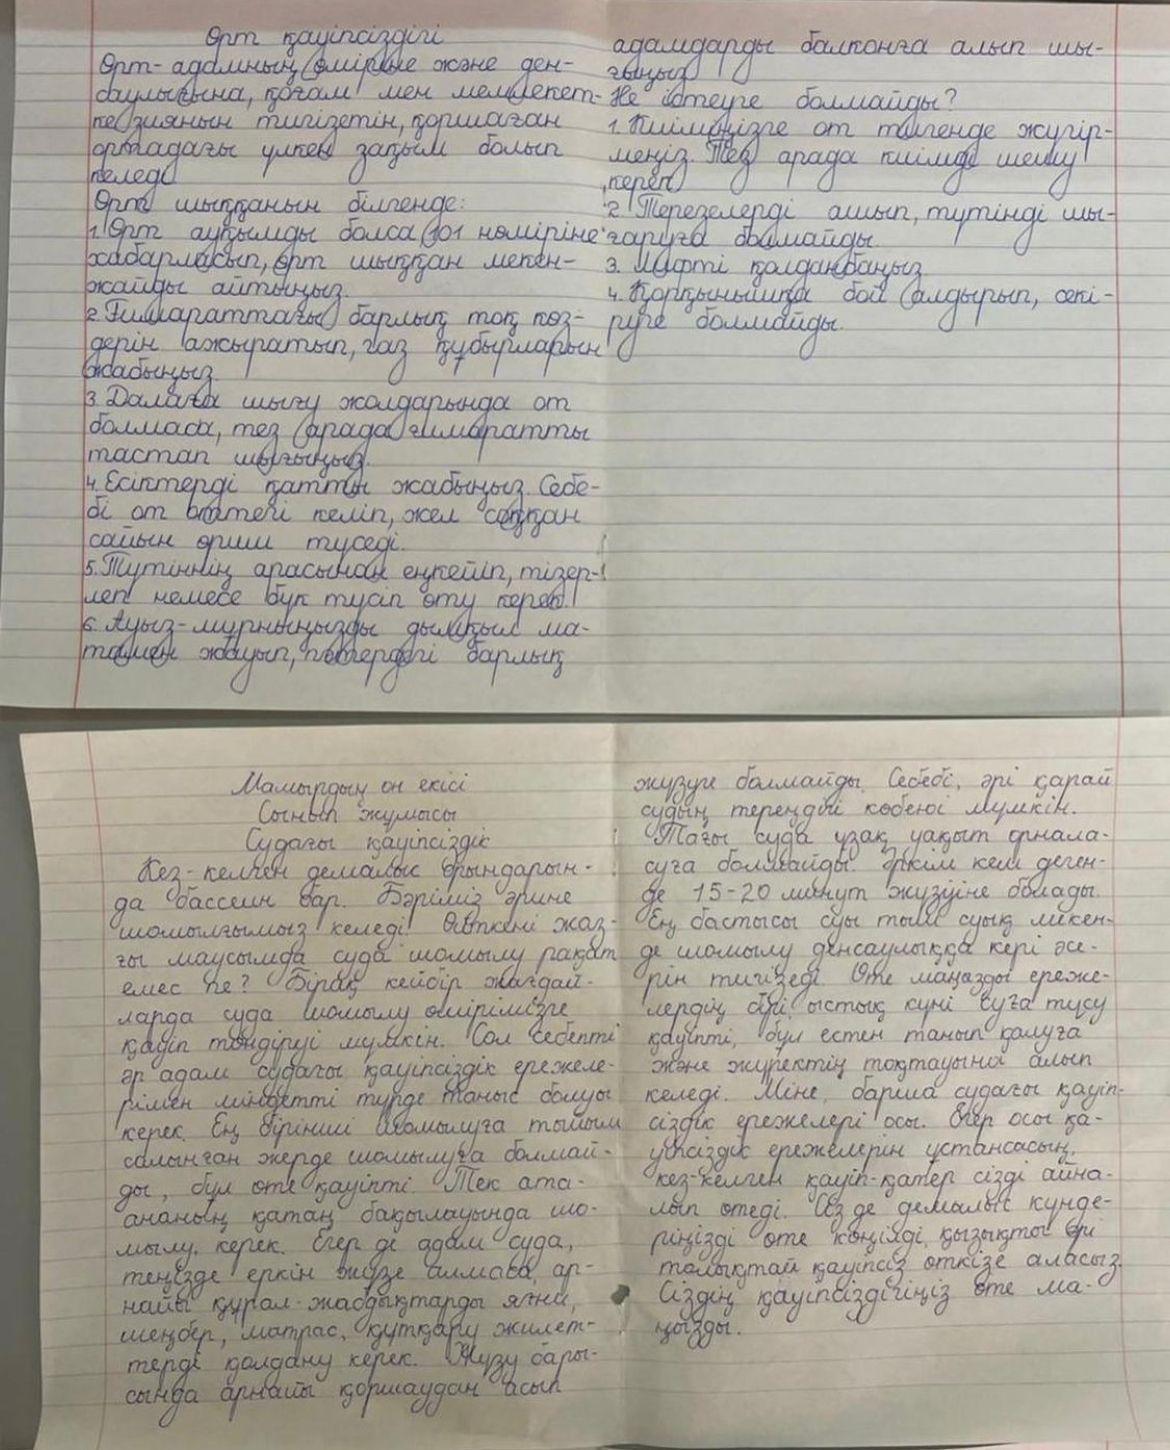 Өрт қауіпсіздігі
Өрт- адамның өміріне және ден-
саулығына, қоғам мен мемлекет-
ке зиянын тигізетін, қоршаған
ортадағы үлкен зақым болып
келеді
Өрт шыққанын білгенде:
1. Өрт ауқымды болса 101 нөміріне
хабарласып, өрт шыққан мекен-
жайды айтыңыз.
2. Ғимараттағы барлық тоқ көз-
дерін ажыратып, газ құбырларын
жабыңыз
3. Далаға шығу жолдарында от
болмаса, тез арада ғимаратты
тастап шығыңыз.
4. Есіктерді қатты жабыңыз. Себе-
бі от өттегі келіп, жел соққан
сайын өрши түседі.
5. Түтіннің арасынан еңкейіп, тізер-
леп немесе бүк түсіп өту керек.
6. Ауыз-мұрныңызды дымқыл ма-
тамен жауып, пәтердегі барлық
адамдарды балконға алып шы-
ғыңыз
Не істеуге болмайды?
1. Киіміңізге от тигенде жүгір-
меңіз. Тез арада киімді шешу
керек
2. Терезелерді ашып, түтінді шы-
ғаруға болмайды.
3. Лифті қолданбаңыз
4. Қорқынышқа бой алдырып, секі-
руге болмайды.
Мамырдың он екісі
Сынып жұмысы
Судағы қауіпсіздік
Кез-келген демалыс орындарын-
да бассеин бар. Бәріміз әрине
шомылғымыз келеді. Өйткені жаз-
ғы маусымда суда шомылу рақат
емес пе? Бірақ кейбір жағдай-
ларда суда шомылу өмірімізге
қауіп төндіруі мүмкін. Сол себепті
әр адам судағы қауіпсіздік ережеле-
рімен міндетті түрде таныс болуы
керек. Ең бірінші шомылуға тыйым
салынған жерде шомылуға болмай-
ды, бұл өте қауіпті. Тек ата-
ананың қатаң бақылауында шо-
мылу керек. Егер де адам суда,
теңізде еркін жүзе алмаса, ар-
найы құрал-жабдықтарды яғни,
шеңбер, матрас, құтқару жилет-
терді қолдану керек. Жүзу бары-
сында арнайы қоршаудан асып
жүзуге болмайды. Себебі, әрі қарай
судың тереңдігі көбеюі мүмкін.
Тағы суда ұзақ уақыт орнала-
суға болмайды. Әркім кем деген-
де 15-20 минут жүзуіне болады.
Ең бастысы суы тым суық мекен-
де шомылу денсаулыққа кері әсе-
рін тигізеді. Өте маңазды ереже-
лердің бірі, ыстық күні суға түсу
қауіпті, бұл естен танып қалуға
және жүректің тоқтауына алып
келеді. Міне, барша судағы қауіп-
сіздік ережелері осы. Егер осы қа-
уіпсіздік ережелерін ұстансасың,
кез-келген қауіп-қатер сізді айна-
лып өтеді. Сіз де демалыс күнде-
ріңізді өте көңілді, қызықты әрі
толықтай қауіпсіз өткізе аласыз.
Сіздің қауіпсіздігіңіз өте ма-
ңызды.